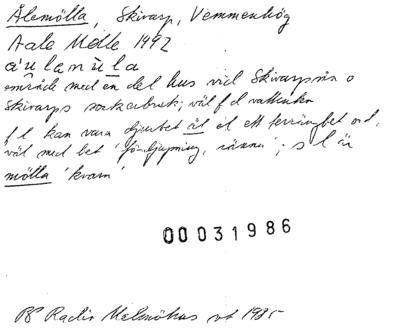 Ålemölla, Skivarp, Vemmenhög
Aale Mølle 1992
áulamùla
område med en del hus vid Skivarpsån o
Skivarps sockerbruk; väl f d vattenkv
f l kan vara djurbet ål el ett terrängbet ord,
väl med bet 'fördjupning, ränna'; s l är
mölla 'kvarn'
00031986
BP Radio Malmöhus vt 1985